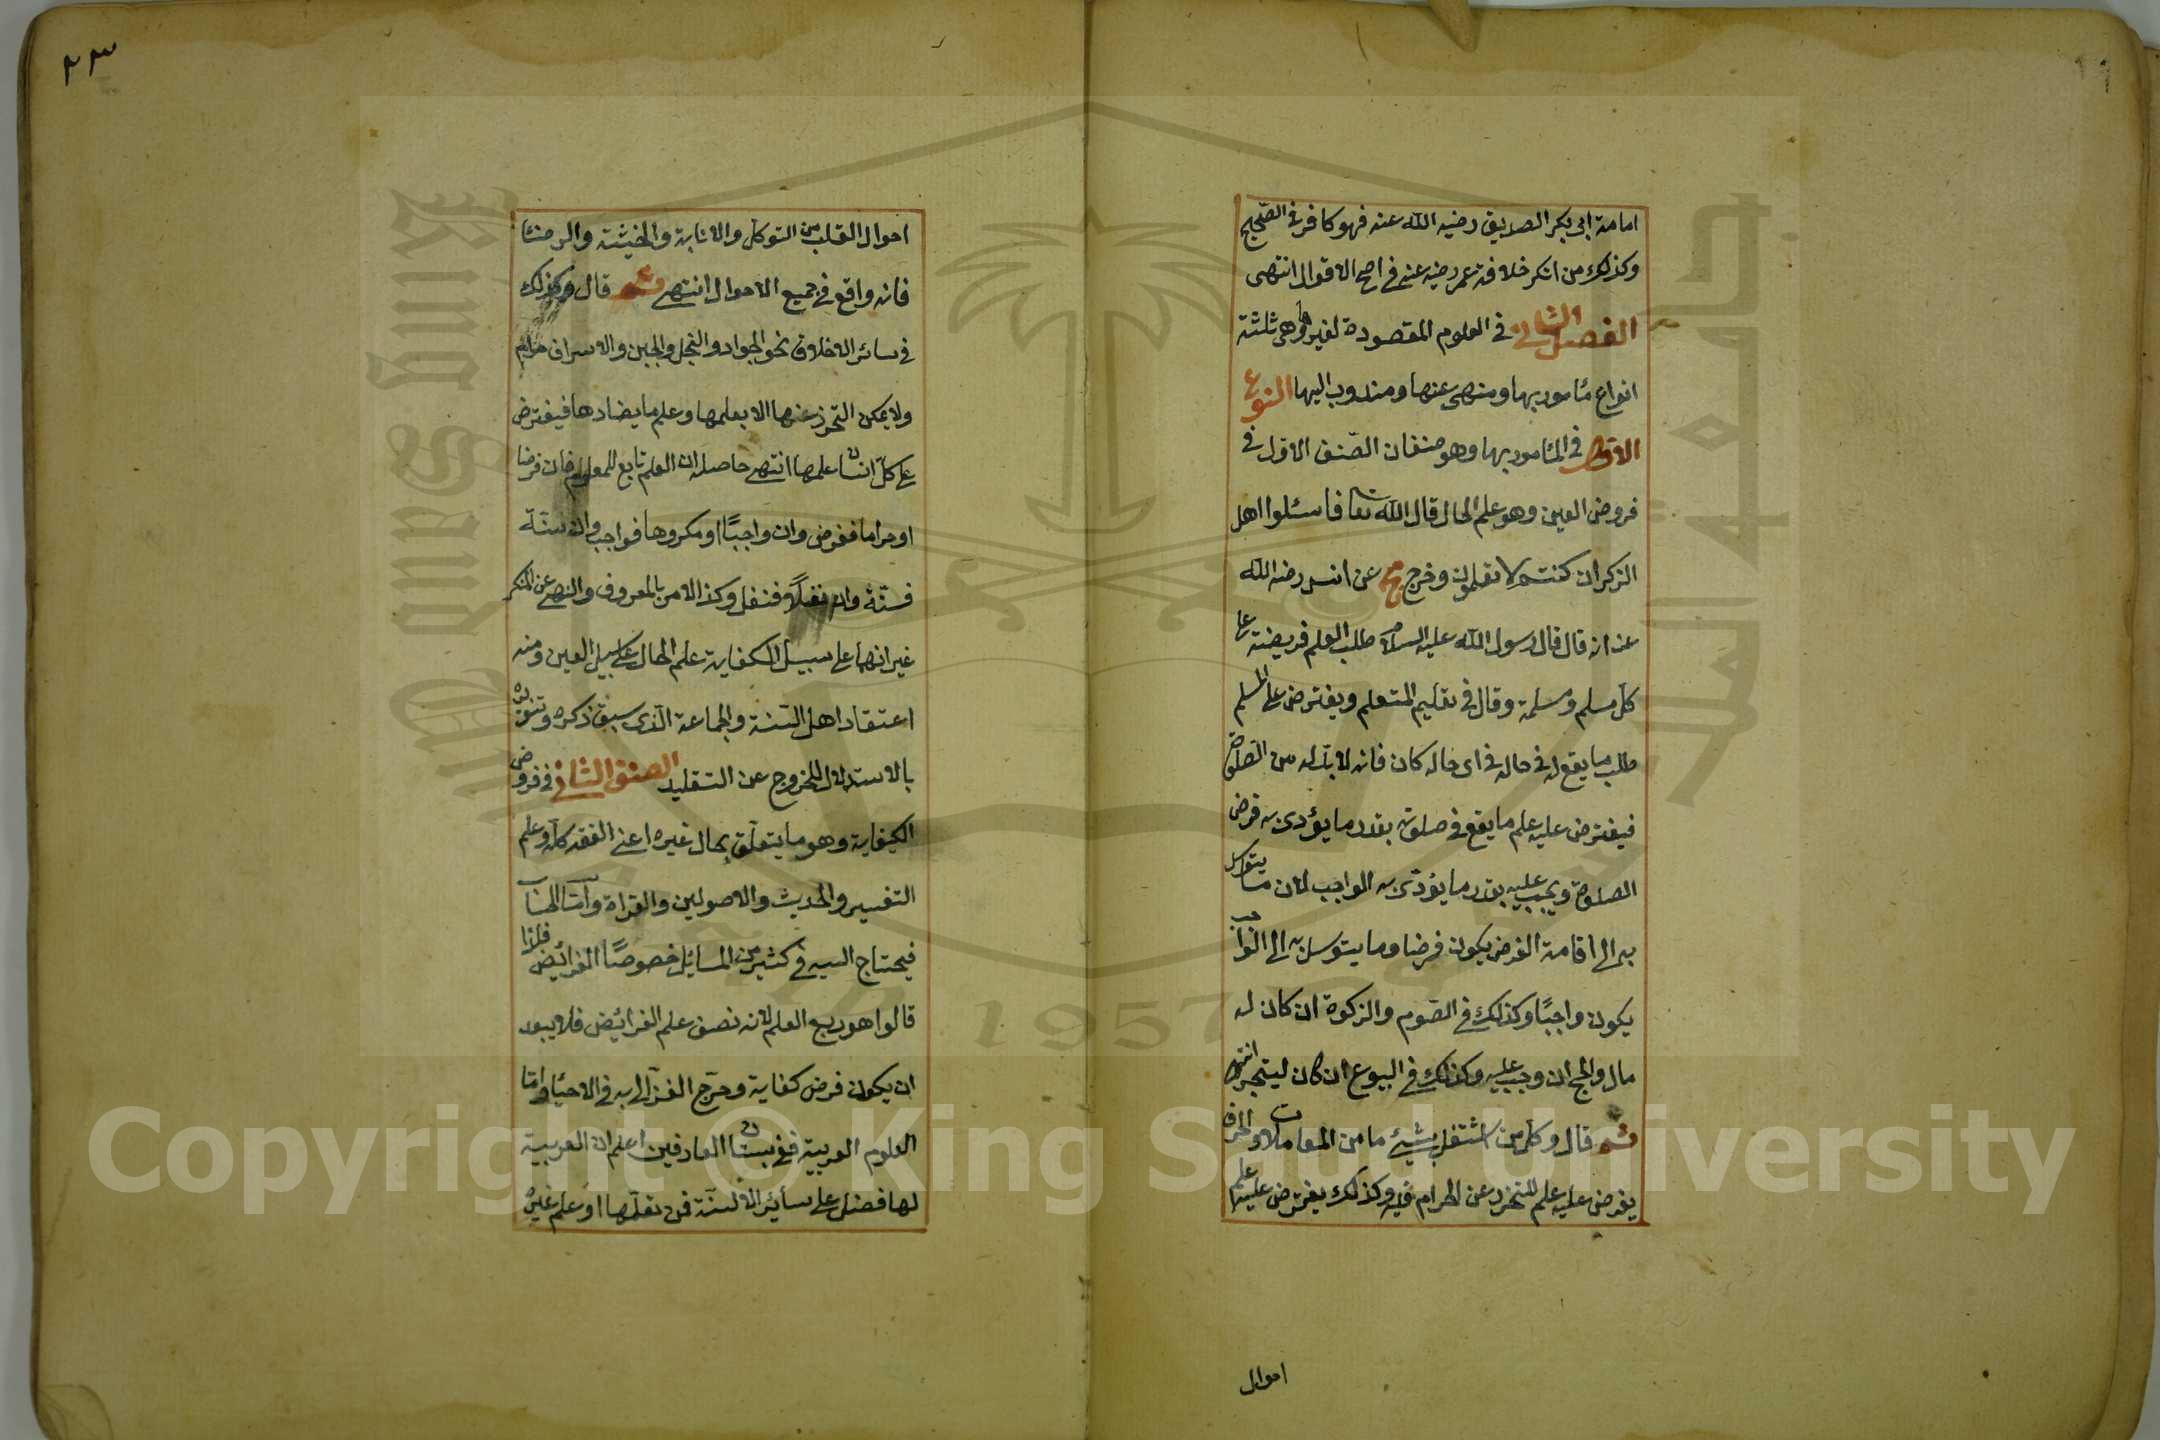 امامة ابى بكر الصديق رضيه الله عنه فهو كافر فى الصحيح
وكذلك من انكر خلافة عمر رضيه عنه فى اصح الاقوال انتهى
الفصل الثانى فى العلوم المقصودة لغيرها وهى ثلثة
انواع مأمور بها ومنهى عنها ومندوب اليها النوع
الاول فى المأمور بها وهو صنفان الصّنف الاول فى
فروض العين وهو علم الحال قال الله تعا فاسئلوا اهل
الذكر ان كنتم لا تعلمون وخرج مج عن انس رضه الله
عنه انه قال قال رسول الله عليه السلام طلب العلم فريضة على
كل مسلم ومسلمة وقال فى تعليم المتعلم ويفترض على المسلم
طلب ما يقع له فى حاله فى اى حاله كان فانه لا بدّ له من الصّلوة
فيفترض عليه علم ما يقع فى صلوته بقدر ما يؤدى به فرض
الصلوة ويجب عليه بقدر ما يؤدّى به الواجب لان ما يتوسل
به الى اقامة الفرض يكون فرضا وما يتوسل به الى الواجب
يكون واجبًا وكذلك فى الصّوم والزكوة ان كان له
مال والحج ان وجب عليه وكذلك فى البيوع ان كان يتجر انتهى
ثم قال وكل من اشتغل بشئ ما من المعاملات والحرف
يفرض عليه علم التحرز عن الحرام فيه وكذلك يفترض عليه علم
احوال
٢٣
احوال القلب من التوكل والانابة والخشية والرضا
فانه واقع فى جميع الاحوال انتهى ثم قال وكذلك
فى سائر الاخلاق نحو الجواد والبخل والجبن والاسراف حرام
ولا يمكن التحرز عنها الا بعلمها وعلم ما يضادها فيفترض
على كلّ انسان علمها انتهى حاصله ان العلم تابع للمعلوم فان فرضا
او حراما ففرض وان واجبًا او مكروها فواجب وان سنّة
فسنّة وان نفلًا فنفل وكذا الامر بالمعروف والنهى عن المنكر
غير انهما على سبيل الكفاية علم الحال على سبيل العين ومنه
اعتقاد اهل السّنة والجماعة الّذى سبق ذكره وتنويره
بالاستدلال للخروج عن التقليد الصنف الثانى فى فروض
الكفاية وهو ما يتعلّق بحال غيره اعنى الفقه كله وعلم
التفسير والحديث والاصولين والقراة وامّا الحساب
فيحتاج اليه فى كثير من المسائل خصوصًا الفرائض فلذا
قالوا هو ربع العلم لانه نصف علم الفرائض فلا يبعد
ان يكون فرض كفاية وصرّح الغزّالى به فى الاحيا وامّا
العلوم العربية ففى بستان العارفين اعلم ان العربية
لها فضل على سائر الالسنّة فمن تعلّمها او علم غيره